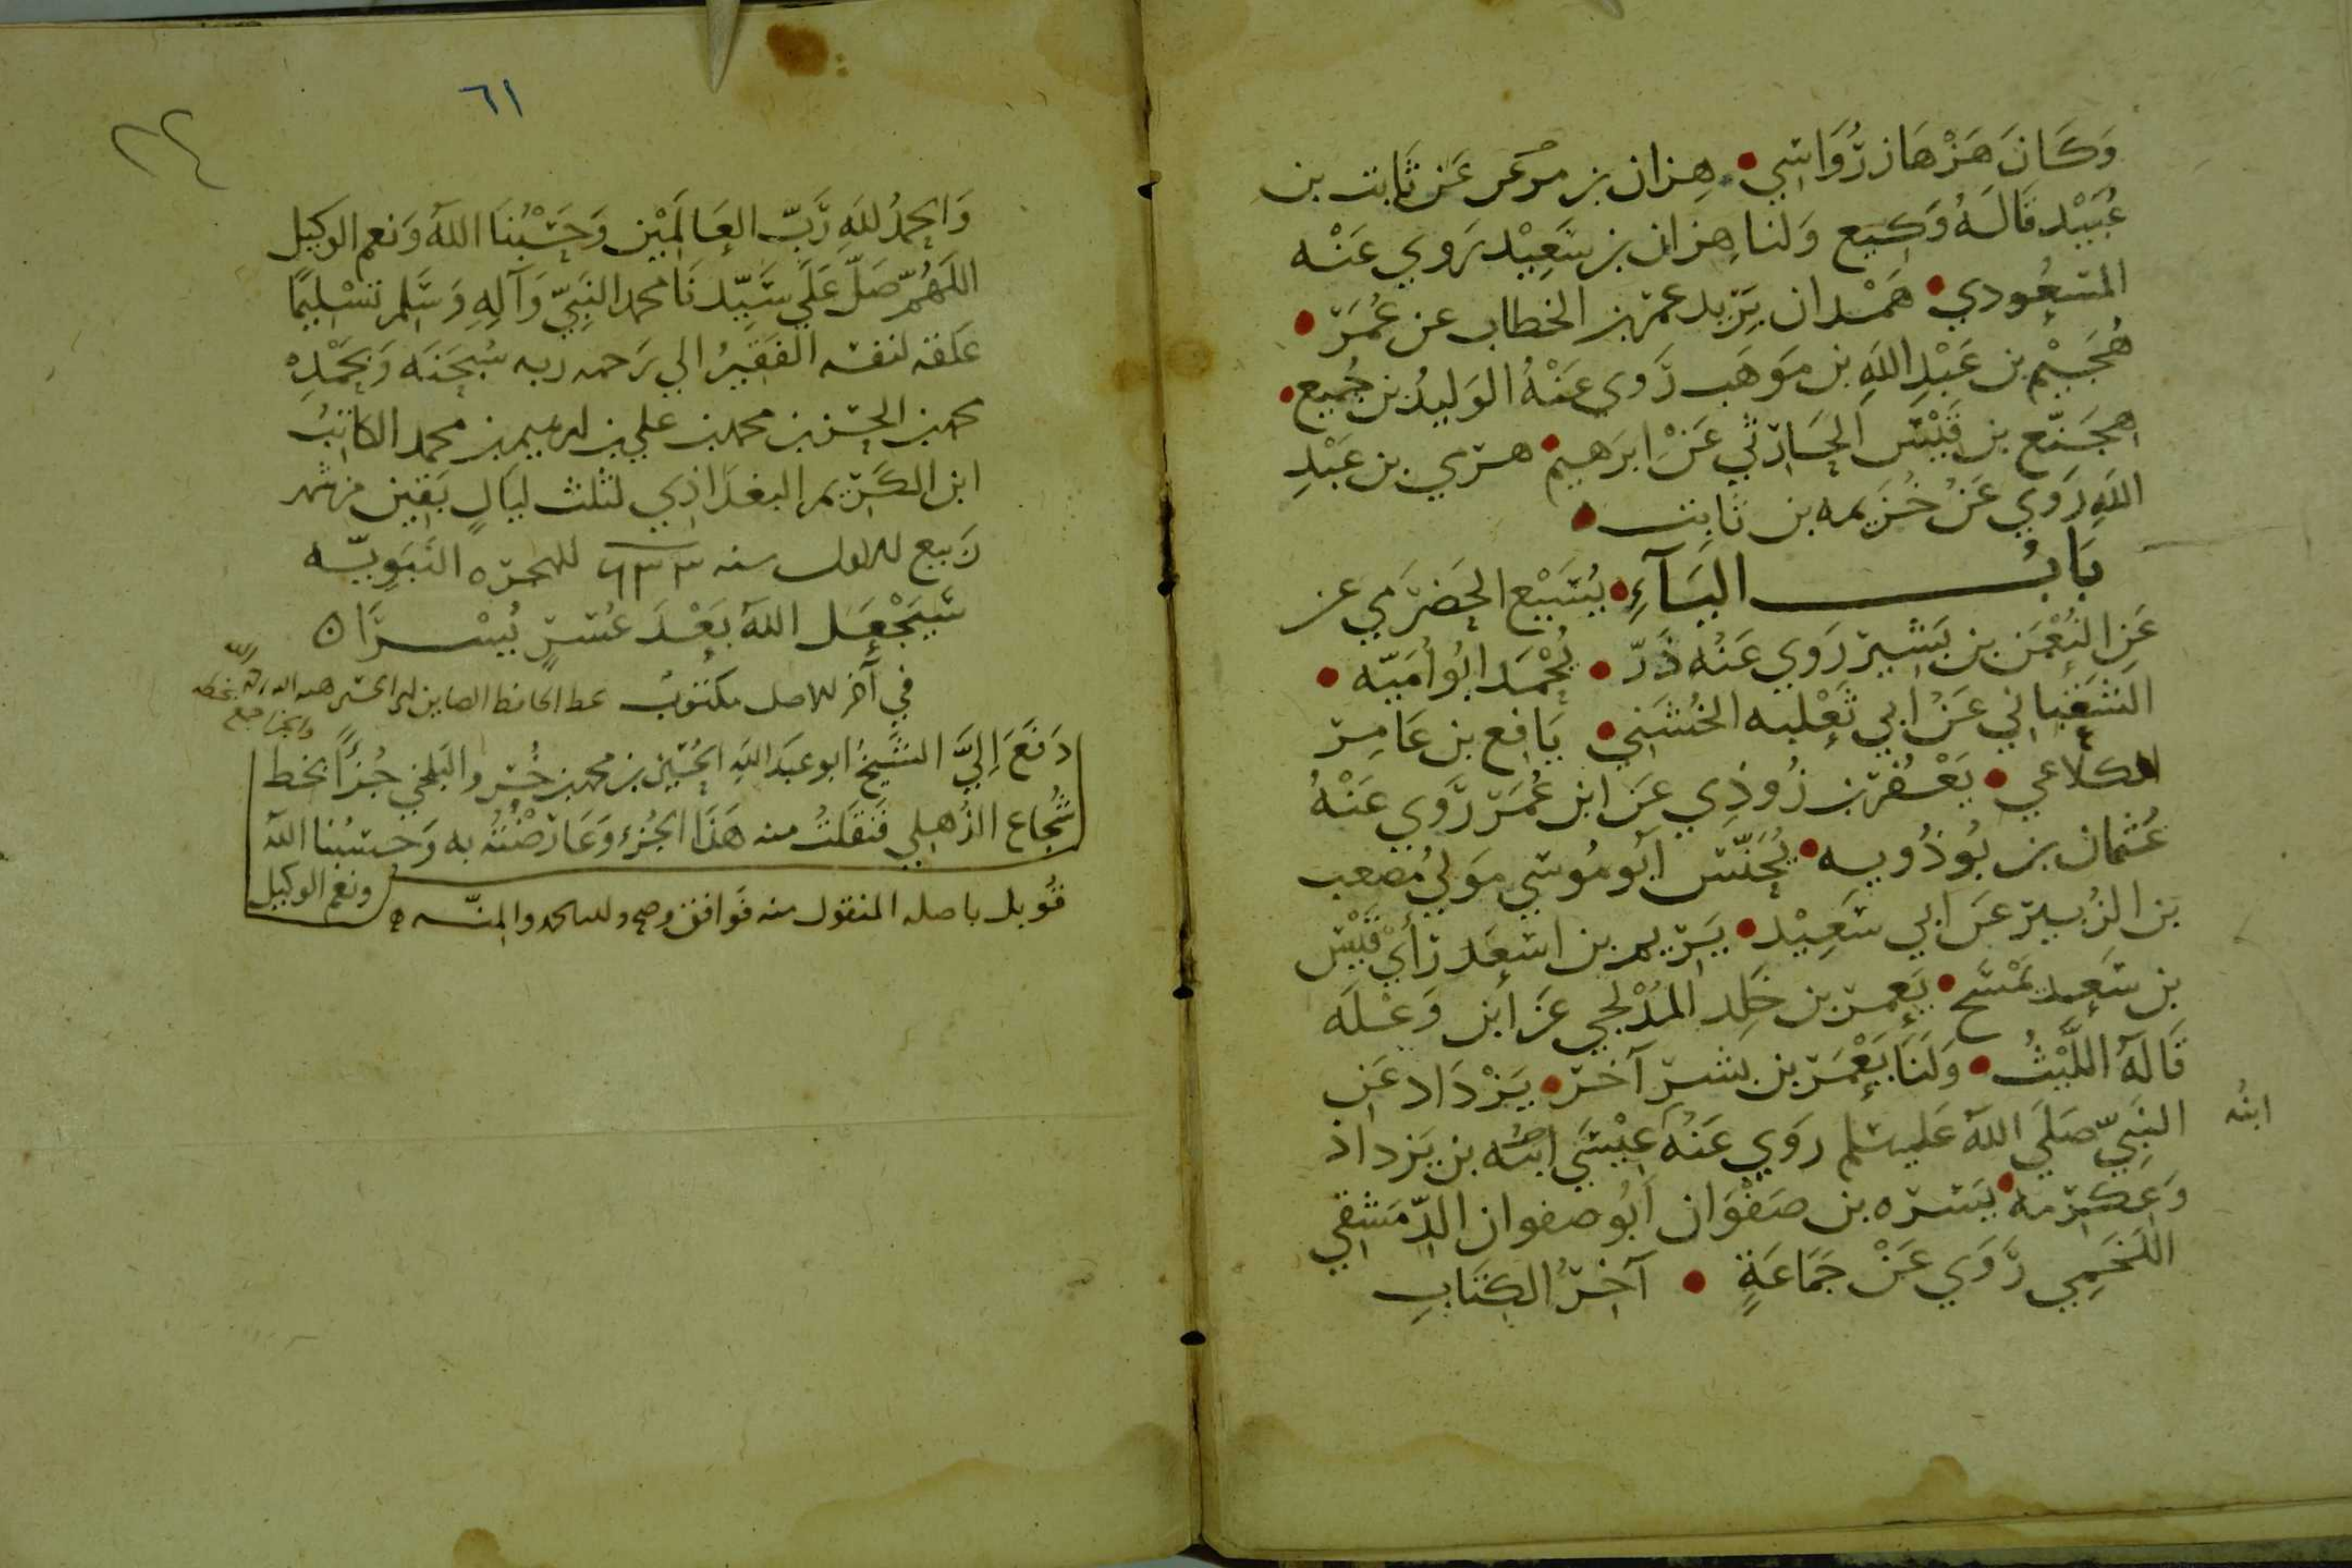 وَكَانَ هَزْهَاز رُّوَاسِي • هِزان بن مرعر عَن ثَابت بن
عُبَيْد قَالَهُ وَكِيع وَلنا هِزان بن سَعِيْد يَروي عَنْه
المسْعُودي • هَمْدان بَرِيد عمر بن الخطاب عن عُمَرَ •
هُجَيْم بن عَبْدِ اللهِ بن مَوهَب رَوي عَنْهُ الوَليدُ بن جُميع •
هجَنّع بن قَيْس الحَارثي عَنْ ابرَهيم • هرَي بن عَبْدِ
اللهِ رَوي عَنْ خُزَيمه بن ثابت •
بَابُ اليَآءِ • يُسَيْع الحَضرَمي عن
عَن النُعْمن بن بَشير رَوي عَنْه ذَرّ • يُحْمَد ابُو اُمَيّه •
الشَعْبَاني عَنْ ابي ثَعْلبه الخُشَني • يَافع بن عَامِر
الكلاعي • يَعْفُر بن رُوذِي عَن ابن عُمَر رَوي عَنْهُ
عُثمان بن بُوذُويه • يُحَنّس اَبُو مُوسي مَولي مُصْعب
بن الزُبير عَن ابي سَعِيْد • يَرِيم بن اسْعَد رَأي قَيْس
بن سَعِيد يَمْسَح • يَعمر بن خَلِد المُدْلجي عَن ابن وَعْلَه
قَالَهُ اللَّيْثُ • وَلَنَا يَعْمَر بن بشر آخر • يَزْدَاد عَن
النبيّ صَلَي اللهُ عَليه سلم روَي عَنْهُ عِيْسَي ابنُه بن يَزداد
ابنُه
وَعِكرمه • يَسَره بن صَفْوَان اَبُو صفوان الدّمَشقي
اللَخمي رَّوَي عَنْ جَمَاعَةٍ • آخِرُ الكِتَابِ
٦١
٢٤
وَالحمدُ للهِ رَّبّ العَالَمِيْن وَحَسْبُنَا اللهُ وَنعم الوكيل
اللَهُمّ صَلّ عَلَي سَيّدنَا محمد النَبِيّ وَآلهِ وَسَلم تَسْلِيمًا
عَلقه لنفسه الفَقيرُ الي رَحمه ربه سُبحَنَه وَبحَمْدِه
محمد بن الحسَن بن محمد بن علي بن ابرهيم بن محمد الكاتبُ
ابن الكَرِيم البغدَاذِي لثلث ليَالٍ بَقِين من شهر
رَبيع الاول سنه ٦٣٣ للهجره النَبَوِيّه
سَيَجْعَل اللهُ بَعْدَ عُسْرٍ يُسْرًا ٥
في آخر الاصل مكتوبُ بخط الحافظ الصاين ابي الحسين هبه الله
دَفَعَ اِليَّ الشَيخُ ابو عبَد اللهِ الحُسَين بن محمد بن خُسْرو البَلخي جُزءًا بخط
شُجاع الذُهلي فَنَقَلتُ منه هَذَا الجُزء وَعَارَضْتُهُ به وَحَسبُنا اللهُ
ونعم الوكيل
قُوبل باصله المنقول منه فَوافق وصح ولله الحمد والمنّه